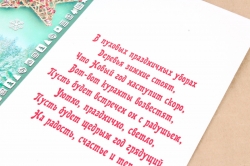 В пуховых праздничных уборах
Деревья зимние стоят,
Что Новый год наступит скоро,
Вот-вот куранты возвестят,
Пусть будет встречен он с радушьем,
Уютно, празднично, светло,
Пусть будет щедрым год грядущий
На радость, счастье и